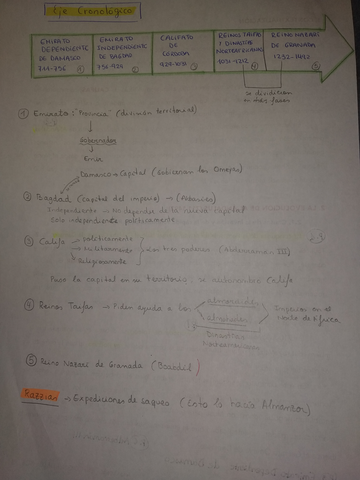 Eje Cronológico
EMIRATO DEPENDIENTE DE DAMASCO 711-756 ①
EMIRATO INDEPENDIENTE DE BAGDAD 756-929 ②
CALIFATO DE CÓRDOBA 929-1031 ③
REINOS TAIFAS Y DINASTÍAS NORTEAFRICANAS 1031-1212 ④
REINO NAZARÍ DE GRANADA ⑤
se dividieron en tres fases
① Emiratos: "Provincia" (división territorial)
Gobernados
Emir
Damasco → Capital (Gobiernan los Omeyas)
② Bagdad (Capital del imperio) → (Abasíes)
Independiente → No depender de la nueva capital
Solo independiente políticamente.
③ Califa
políticamente
militarmente
religiosamente
tres poderes (Abderraman III)
Puso la capital en su territorio, se autonombró Califa
④ Reinos Taifas → Piden ayuda a los
almorávides
almohades
Imperios en el norte de África
Dinastías norteafricanas
⑤ Reino Nazarí de Granada (Boabdil)
Razzias → Expediciones de saqueo (Esto lo hacía Almanzor)